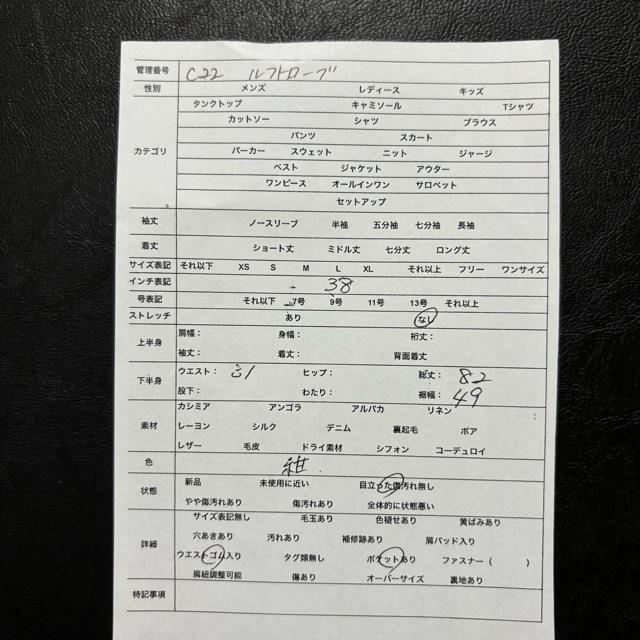 管理番号 C22 ルフトローブ
性別 メンズ レディース キッズ
タンクトップ キャミソール Tシャツ
カットソー シャツ ブラウス
パンツ スカート
カテゴリ パーカー スウェット ニット ジャージ
ベスト ジャケット アウター
ワンピース オールインワン サロペット
セットアップ
袖丈 ノースリーブ 半袖 五分袖 七分袖 長袖
着丈 ショート丈 ミドル丈 七分丈 ロング丈
サイズ表記 それ以下 XS S M L XL それ以上 フリー ワンサイズ
インチ表記 38
号表記 それ以下 7号 9号 11号 13号 それ以上
ストレッチ あり なし
上半身 肩幅： 身幅： 裄丈：
袖丈： 着丈： 背面着丈
下半身 ウエスト： ヒップ： 総丈： 82
股下： わたり： 裾幅： 49
カシミア アンゴラ アルパカ リネン
素材 レーヨン シルク デニム 裏起毛 ボア
レザー 毛皮 ドライ素材 シフォン コーデュロイ
色 紺
状態 新品 未使用に近い 目立った傷汚れ無し
やや傷汚れあり 傷汚れあり 全体的に状態悪い
サイズ表記無し 毛玉あり 色褪せあり 黄ばみあり
詳細 穴あきあり 汚れあり 補修跡あり 肩パッド入り
ウエストゴム入り タグ類無し ポケットあり ファスナー（ ）
肩紐調整可能 傷あり オーバーサイズ 裏地あり
特記事項